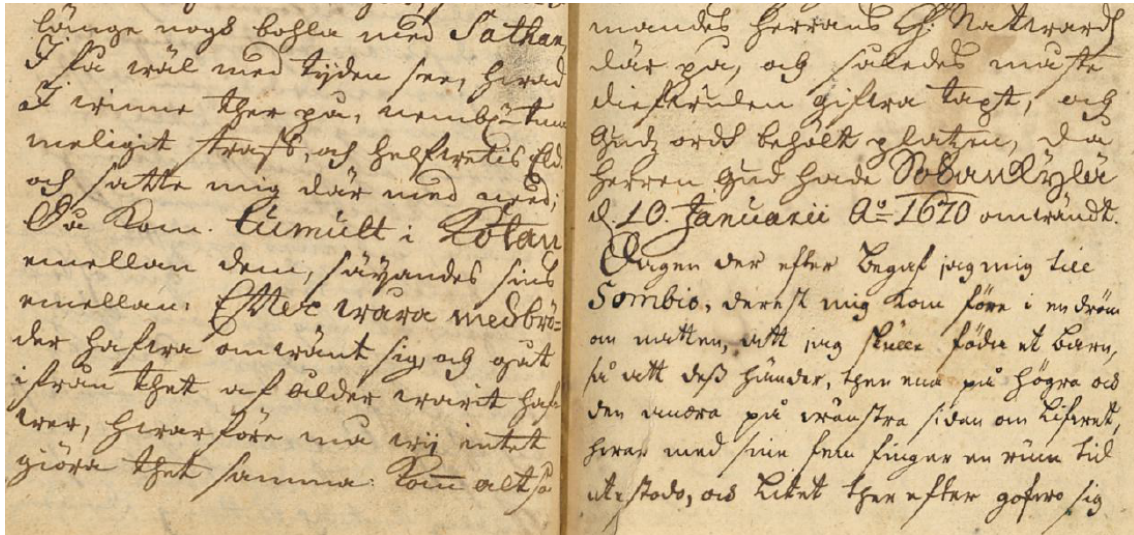 länge nogh bohla med Sathan,
I få wäl med tyden see, hwad
I winne ther på, nembl:
straff, och helfwetis Eld.
och satte mig där med ned;
Då kom tumult i Kåtan
emellan dem, säyandes sins
emellan: Effter wara medbrö=
der hafwa omwänt sig, och gåt
ifrån thet af ålder warit haf
wer, hwarföre må wij intet
giöra thet samma: Kom altså
mandes Herrans H. Nattward
där på, och således måste
diefwulen gifwa tapt, och
Gudz ordh behölt platzen, då
Herren Gud hade Sodankÿlä
d. 10. Januarii Ao 1670 omwändt.
Dagen der efter begaf jag mig till
Sombio, derest mig kom före i en dröm
om natten, att jag skulle föda et barn,
så att deß händer, then ena på högra och
den andra på wänstra sidan om lifwet,
hwar med sine fem finger en rum tid
utestodo, och litet ther efter gofwo sig